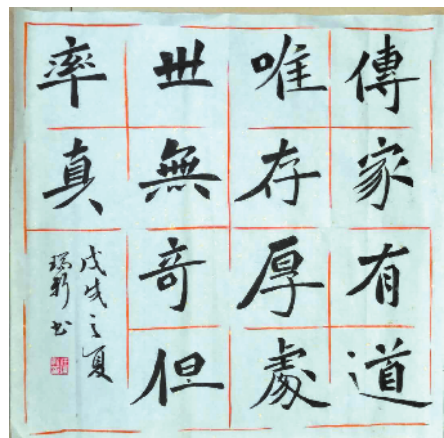 傳家有道
唯存厚處
世無奇但
率真
戊戌之夏
瑞新書